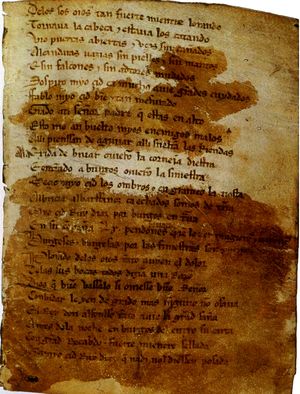 Delos sos oios tan fuerte mientre lorando
Tornaua la cabeça e estaua los catando
Vio puertas abiertas e vços sin cañados
Alcandaras uazias sin pielles e sin mantos
E sin falcones e sin adtores mudados
Sospiro myo çid ca mucho auie grandes cuydados
Fablo myo çid bien e tan mesurado
Grado ati señor padre que estas en alto
Esto me an buelto myos enemigos malos
Alli pienssan de aguiiar alli sueltan las Riendas
exida de biuar ouieron la corneia diestra
E entrando a burgos ouieron la siniestra
Meçio myo çid los ombros e engrameo la tiesta
Albricia albarffanez ca echados somos de tierra
Myo çid Ruy diaz por burgos entraua
En su compaña Lx pendones
Burgeses e burgesas por las finiestras son
Plorando delos oios tanto auyen el dolor
Delas sus bocas todos dizian una Razon
Dios que buen vassalo si ouiesse buen Señor
Conbidar le yen de grado mas ninguno non osaua
El Rey don alfonsso tanto auie la grand saña
Antes dela noche en burgos del entro su carta
Con grand Recabdo e fuerte mientre sellada
Que a myo çid Ruy diaz que nadi nol diessen posada